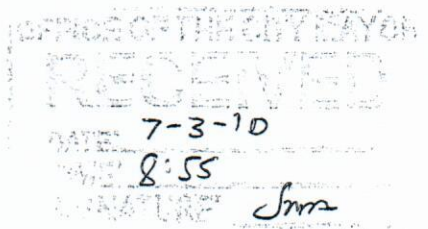 OFFICE OF THE CITY MAYOR
RECEIVED
DATE: 7-3-10
8:55
SIGNATURE